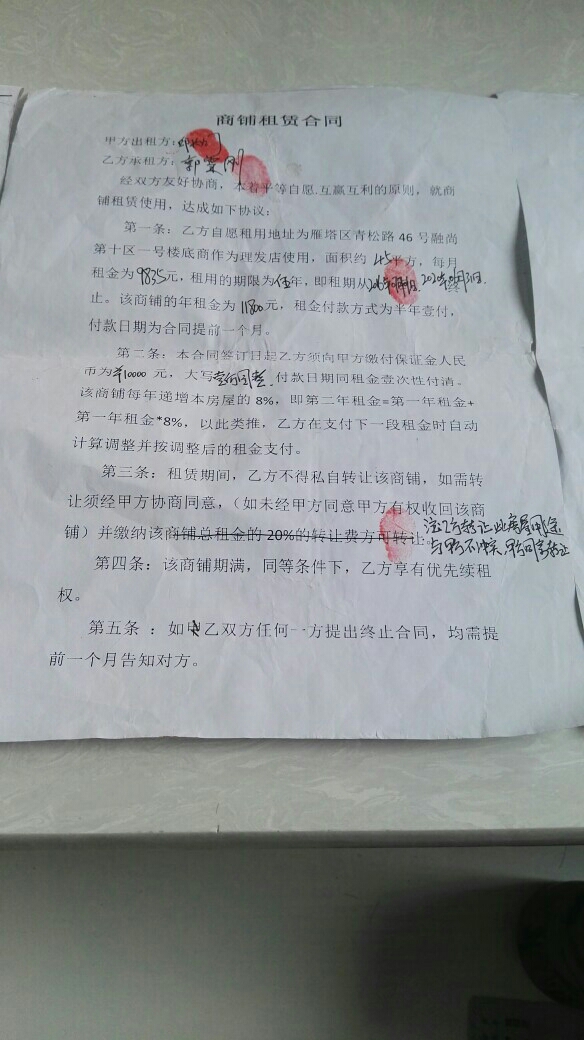 商铺租赁合同
甲方出租方：
乙方承租方：郭 刚
经双方友好协商，本着平等自愿.互赢互利的原则，就商
铺租赁使用，达成如下协议：
第一条：乙方自愿租用地址为雁塔区青松路46号融尚
第十区一号楼底商作为理发店使用，面积约45平方，每月
租金为9835元，租用的期限为伍年，即租期从
止。该商铺的年租金为11800元，租金付款方式为半年壹付，
付款日期为合同提前一个月。
第二条：本合同签订日起乙方须向甲方缴付保证金人民
币为¥10000元，大写 付款日期同租金壹次性付清。
该商铺每年递增本房屋的8%，即第二年租金=第一年租金+
第一年租金*8%，以此类推，乙方在支付下一段租金时自动
计算调整并按调整后的租金支付。
第三条：租赁期间，乙方不得私自转让该商铺，如需转
让须经甲方协商同意，（如未经甲方同意甲方有权收回该商
铺）并缴纳该商铺总租金的20%的转让费方可转让。
注：乙方转让此房屋用途
与 不冲突，甲方同意转让
第四条：该商铺期满，同等条件下，乙方享有优先续租
权。
第五条 ：如甲乙双方任何一方提出终止合同，均需提
前一个月告知对方。